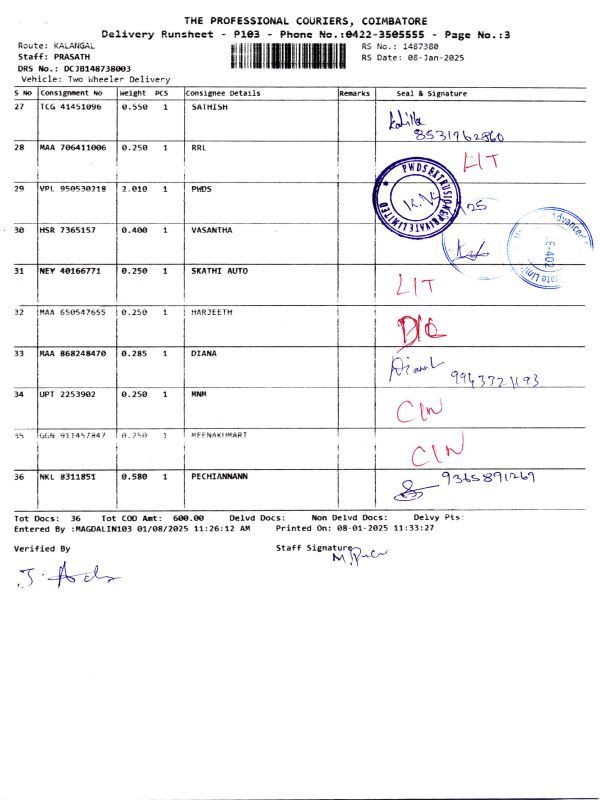 THE PROFESSIONAL COURIERS, COIMBATORE
Delivery Runsheet - P103 - Phone No.:0422-3505555 - Page No.:3
Route: KALANGAL RS No.: 1487380
Staff: PRASATH RS Date: 08-Jan-2025
DRS No.: DCJB148738003
Vehicle: Two Wheeler Delivery
S No Consignment No Weight PCS Consignee Details Remarks Seal & Signature
27 TCG 41451096 0.550 1 SATHISH
8531962860
28 MAA 706411006 0.250 1 RRL LIT
29 VPL 950530218 2.010 1 PWDS
PWDS EXTRUSION PRIVATE LIMITED
30 HSR 7365157 0.400 1 VASANTHA
Advanced
E-402
31 NEY 40166771 0.250 1 SKATHI AUTO LIT
32 MAA 650547655 0.250 1 HARJEETH D/C
33 MAA 868248470 0.285 1 DIANA Diana
34 UPT 2253902 0.250 1 MNM CIN
35 GGN 911457847 0.250 1 MEENAKUMART CIN
36 NKL 8311851 0.580 1 PECHIANNANN 9365891269
Tot Docs: 36 Tot COD Amt: 600.00 Delvd Docs: Non Delvd Docs: Delvy Pts:
Entered By :MAGDALIN103 01/08/2025 11:26:12 AM Printed On: 08-01-2025 11:33:27
Verified By Staff Signature